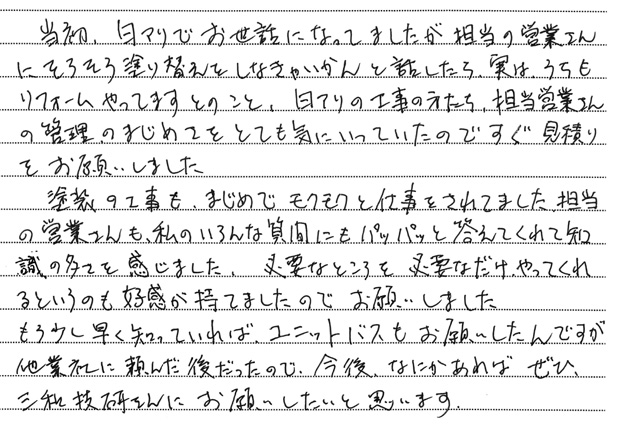 当初、白アリでお世話になってましたが担当の営業さん
にそろそろ塗り替えをしなきゃいかんと話したら、実は、うちも
リフォームやってますとのこと、白アリの工事の方たち、担当営業さん
の管理、のまじめさをとても気にいっていたのですぐ見積り
をお願いしました
塗装の工事も、まじめでモクモクと仕事をされてました、担当
の営業さんも、私のいろんな質問にもパッパッと答えてくれて知
識の多さを感じました、必要なところを必要なだけやってくれ
るというのも好感が持てましたのでお願いしました
もう少し早く知っていれば、ユニットバスもお願いしたんですが
他業社に頼んだ後だったので、今後、なにかあればぜひ、
三和技研さんにお願いしたいと思います。